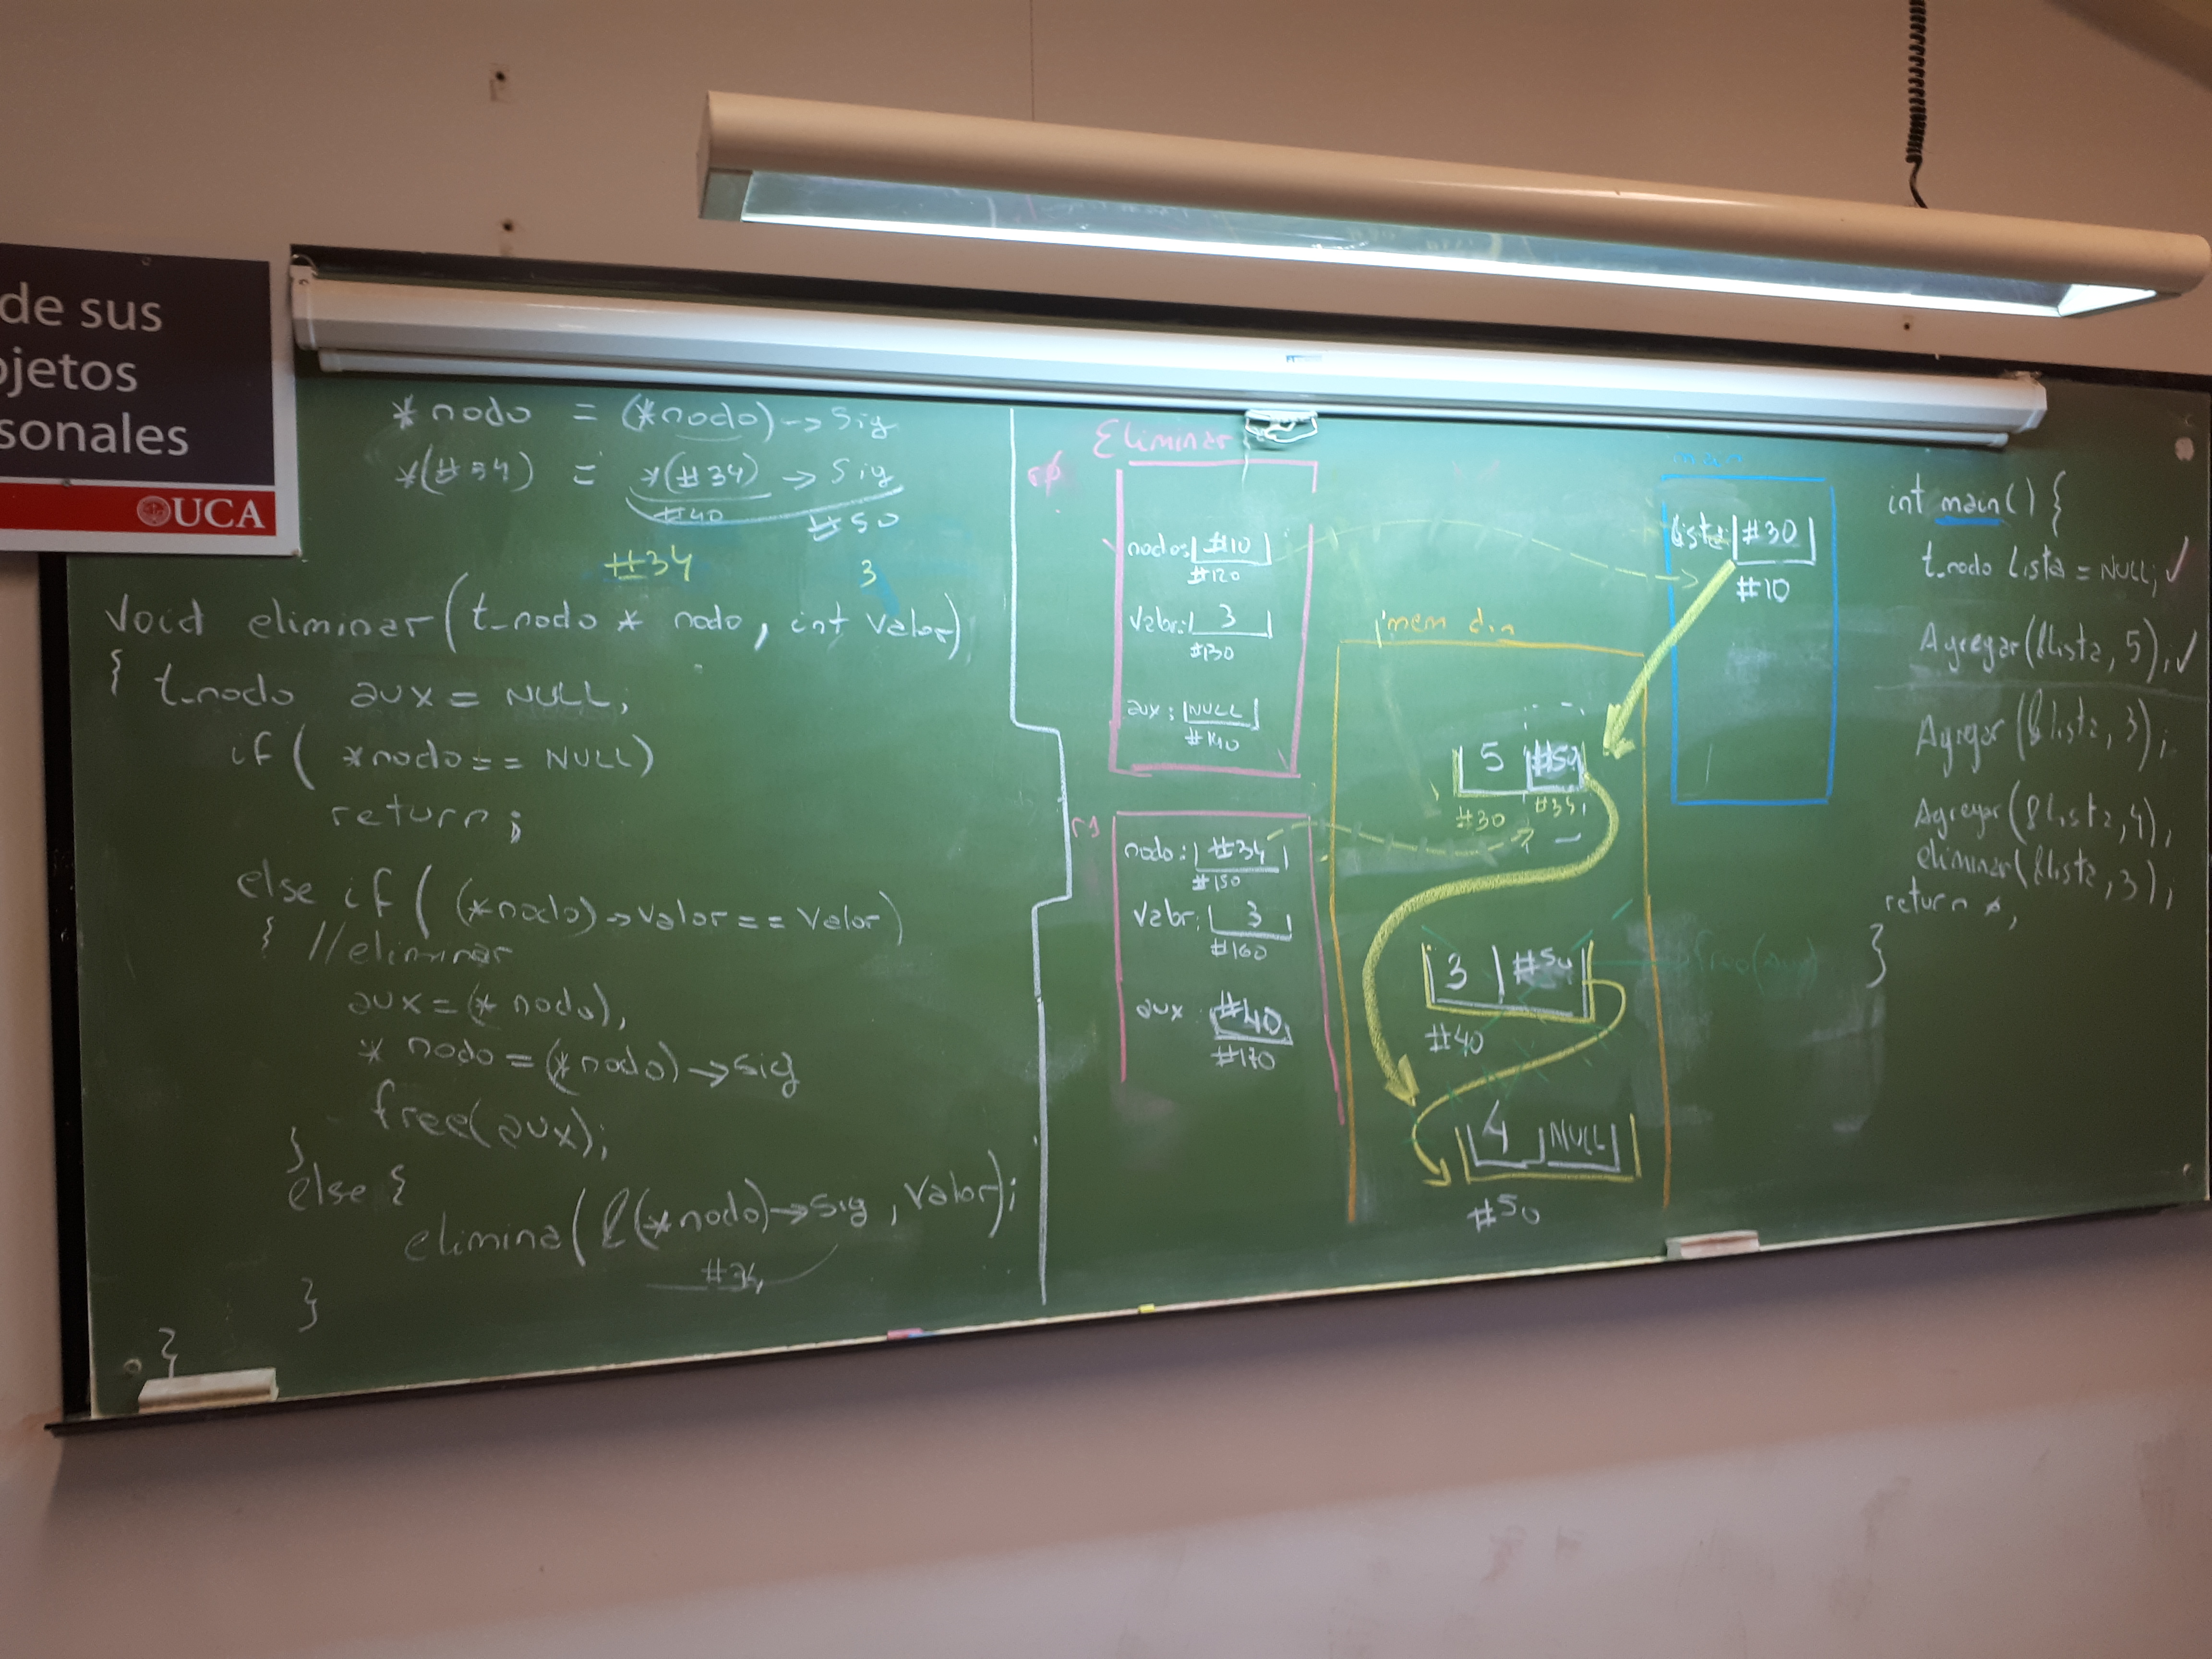 de sus
jetos
sonales
UCA
*nodo = (*nodo)->sig
*(#34) = *(#34) -> sig
#40 #50
#34 3
void eliminar(t_nodo * nodo, int valor)
{ t_nodo aux = NULL;
if( *nodo == NULL)
return;
else if( (*nodo)->valor == valor)
{ //eliminar
aux=(*nodo);
* nodo=(*nodo)->sig
free(aux);
}
else {
elimina(&(*nodo)->sig, valor);
#34
}
}
Eliminar
r0
nodo: #10
#120
valor: 3
#130
aux: NULL
#140
r1
nodo: #34
#150
valor: 3
#160
aux: #40
#170
mem din
5 #50
#30 #34
3 #50
#40
free(aux)
4 NULL
#50
main
lista #30
#10
int main() {
t_nodo lista = NULL;
Agregar(&lista, 5);
Agregar(&lista, 3);
Agregar(&lista, 4);
eliminar(&lista, 3);
return 0;
}